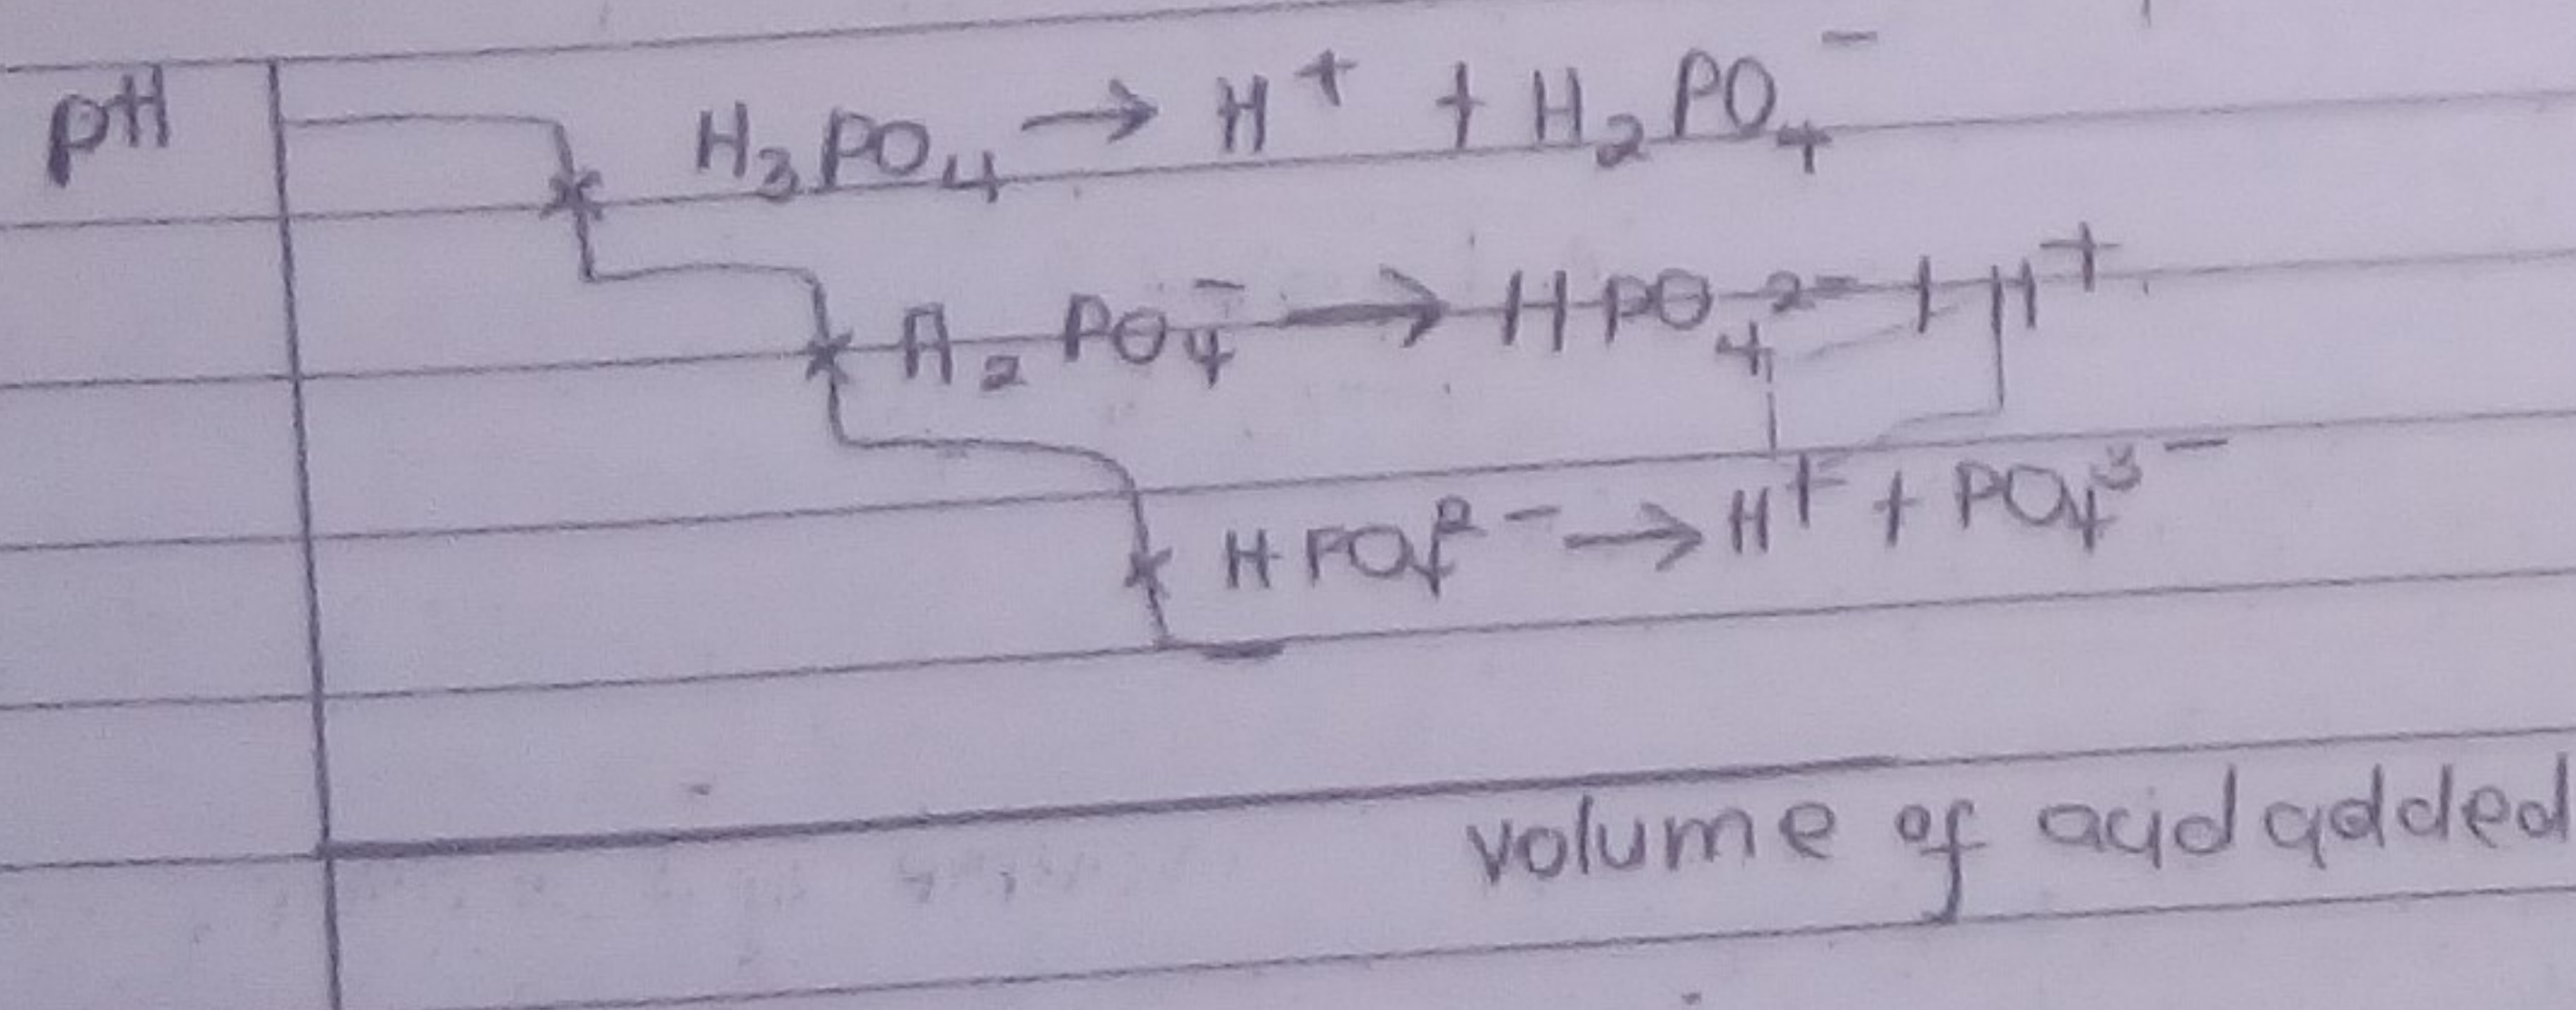 pH
H₃PO₄ → H⁺ + H₂PO₄⁻
H₂PO₄⁻ → HPO₄²⁻ + H⁺
HPO₄²⁻ → H⁺ + PO₄³⁻
volume of acid added